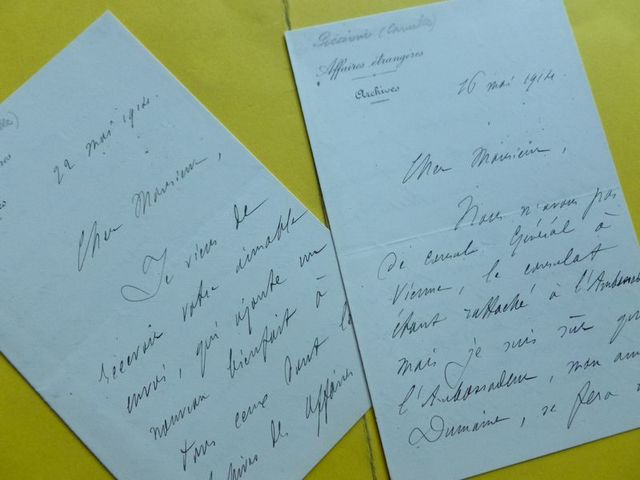 22 mai 1914.
Cher Monsieur,
Je viens de
recevoir votre aimable
envoi, qui ajoute un
nouveau bienfait à
tous ceux dont l
hives des Affaires
(Camille)
Affaires étrangères
Archives
26 mai 1914.
Cher Monsieur,
Nous n'avons pas
de consul Général à
Vienne, le consulat
étant rattaché à l'Ambassad
mais je suis sûr que
l'Ambassadeur, mon ami
Dumaine, se fera